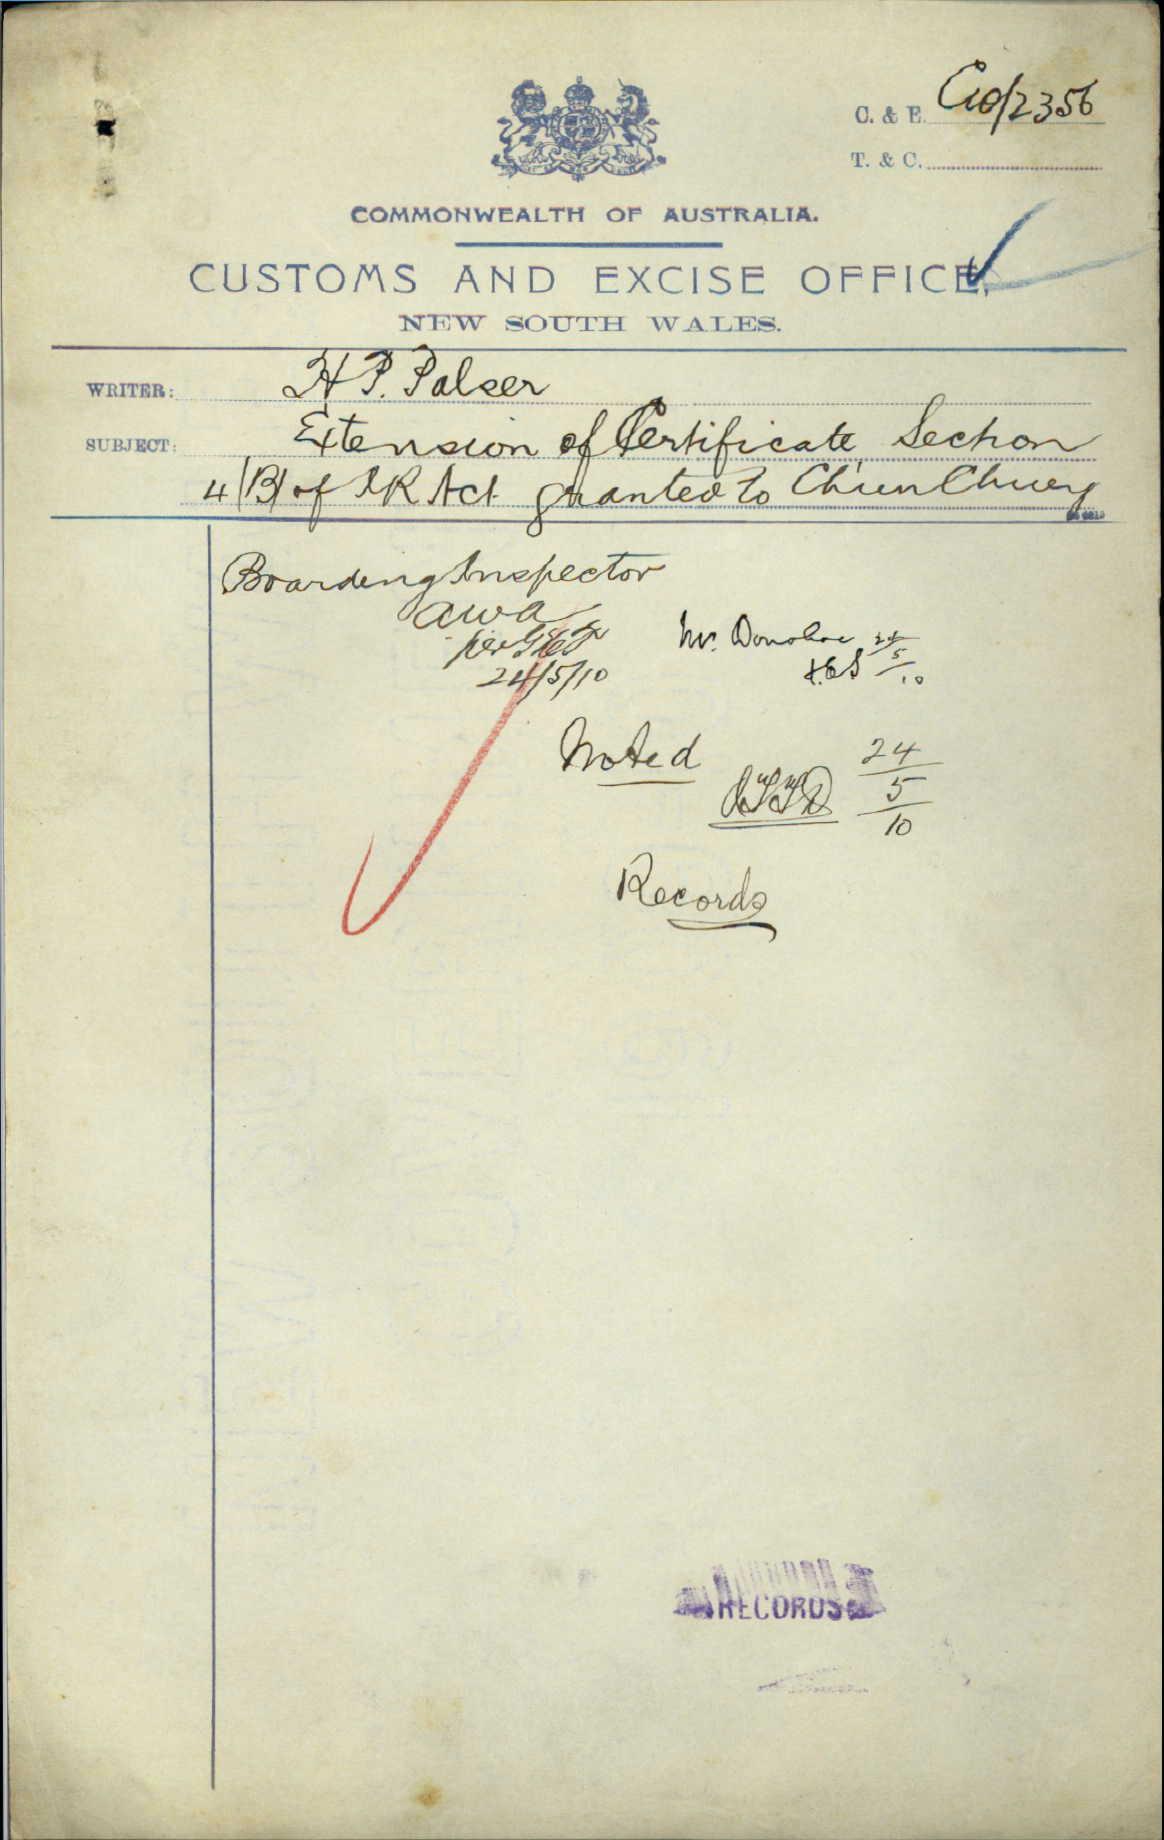 C. & E. C10/2356
T. & C.
COMMONWEALTH OF AUSTRALIA.
CUSTOMS AND EXCISE OFFICE,
NEW SOUTH WALES.
WRITER: H P. Palser
SUBJECT: Extension of Certificate Section
4(B) of IR Act granted to Chun Chuey
Boarding Inspector
AWA
24/5/10
Mr. Donohoe 24/5/10
Noted 24/5/10
Records
RECORDS